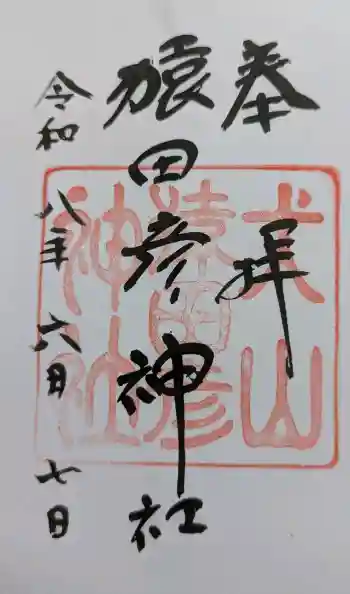 奉拝
犬山猿田彦神社
猿田彦神社
令和八年六月七日